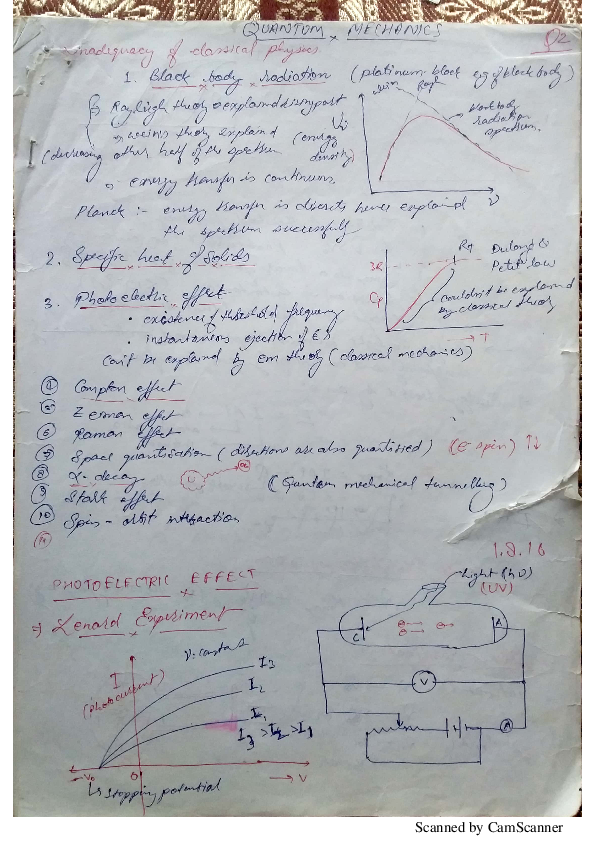 QUANTUM MECHANICS
Inadequacy of classical physics
1. Black body radiation (platinum-black eg of black body)
Rayleigh theory explained part
weins theory explained (energy density)
(decreasing other half of the spectrum
energy transfer is continuous
wein
black body radiation spectrum.
ν
Planck :- energy transfer is discrete hence explained
the spectrum successfully
2. Specific heat of Solids
3R
Cp
RT
Dulong & Petit law
couldn't be explained by classical theory
→ T
3. Photoelectric effect
• existence of threshold frequency
• instantaneous ejection of
can't be explained by em theory (classical mechanics)
④ Compton effect
Zeeman effect
⑥ Raman effect
⑦ Space quantisation (directions are also quantised) (e⁻ spin) ↑↓
⑧ α-decay
U
α
(Quantum mechanical tunnelling)
⑨ Stark effect
⑩ Spin-orbit interaction
PHOTOELECTRIC EFFECT
⇒ Lenard Experiment
Light (hν)
(UV)
C
A
V
A
ν: constant
I
(photocurrent)
I3
I2
I1
I3 > I2 > I1
-V0
O
→ V
↳ stopping potential
Scanned by CamScanner